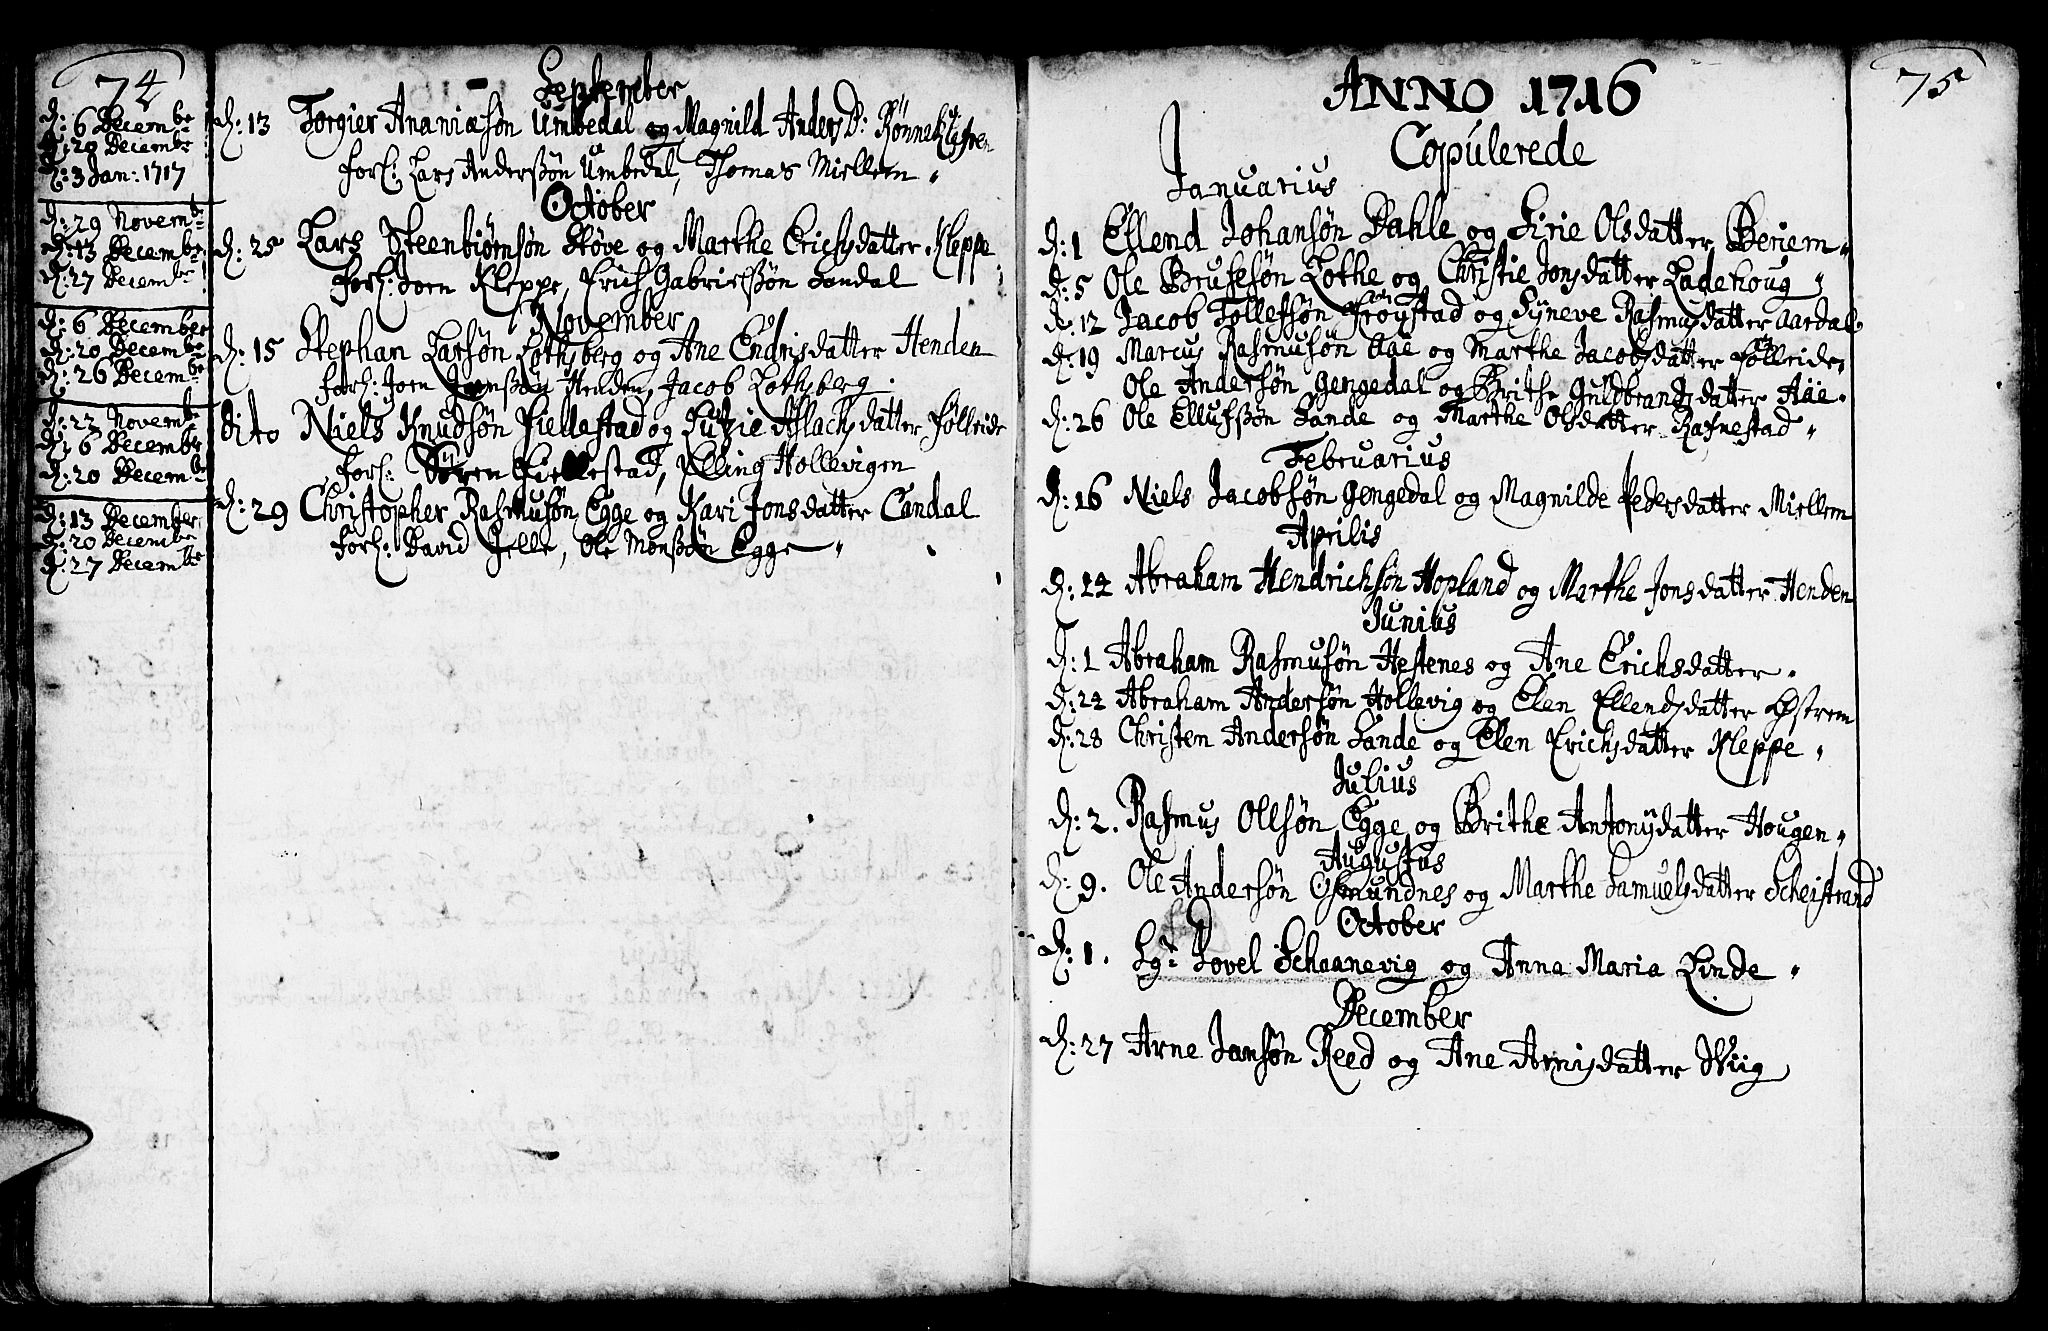 74
September
d: 6 Decembr
d: 20 Decembr
d: 3 Jan: 1717
d: 13 Torgier Ananiæsøn Umbedal og Magnild Anders D: Rønneklefven
forl: Lars Anderssøn Umbedal, Thomas Miellem
October
d: 29 Novembr
d: 13 Decembr
d: 27 Decembr
d: 25 Lars Steenbiørnsøn Støve og Marthe Erichsdatter Kleppe
forl: Joen Kleppe, Erich Gabrielssøn Sandal
November
d: 6 December
d: 20 Decembr
d: 26 Decembr
d: 15 Stephan Larsøn Lothsberg og Ane Endrisdatter Henden
forl: Joen Jonssøn Henden, Jacob Lothsberg
d: 22 Novembr
d: 6 Decembr
d: 20 Decembr
dito Niels Knudsøn Fiellestad og Lutzie Aslachsdatter Følleide
forl: Søren Fiellestad, Elling Hollevigen
d: 13 December
d: 20 Decembr
d: 27 Decembr
d: 29 Christopher Rasmusøn Egge og Kari Jonsdatter Candal
forl: David Jelle, Ole Monssøn Egge
75
ANNO 1716
Copulerede
Januarius
d: 1 Ellend Johansøn Dahle og Sirie Olsdatter Beriem
d: 5 Ole Brusesøn Lothe og Christie Jonsdatter Ladehoug
d: 12 Jacob Tollefsøn Frøystad og Syneve Rasmusdatter Aardal
d: 19 Marcus Rasmusøn Aae og Marthe Jacobsdatter Følleide
Ole Andersøn Gengedal og Brithe Guldbrandsdatter Aae
d: 26 Ole Ellufssøn Sande og Marthe Olsdatter Rafnestad
Februarius
d: 16 Niels Jacobsøn Gengedal og Magnilde Pedersdatter Miellem
Aprilis
d: 22 Abraham Hendrichsøn Hopland og Marthe Jonsdatter Henden
Junius
d: 1 Abraham Rasmusøn Hestenes og Ane Erichsdatter
d: 22 Abraham Andersøn Hollevig og Elen Ellendsdatter Østrem
d: 28 Christen Andersøn Sande og Elen Erichsdatter Kleppe
Julius
d: 2. Rasmus Olesøn Egge og Brithe Antonijdatter Hougen
Augustus
d: 9. Ole Andersøn Osmundnes og Marthe Samuelsdatter Scheistrand
October
d: 1. Sgr Povel Schaanevig og Anna Maria Linde
December
d: 27 Arne Jansøn Reed og Ane Arnisdatter Wiig